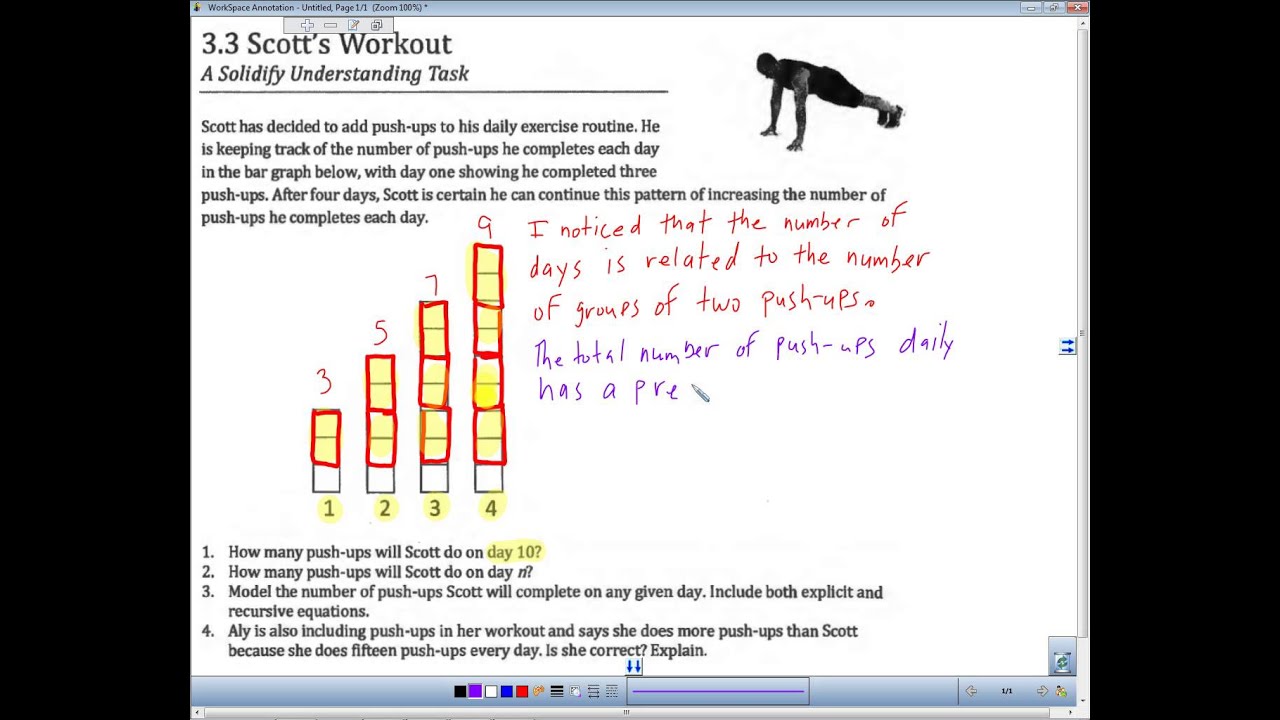 WorkSpace Annotation - Untitled, Page 1/1 (Zoom 100%) *
3.3 Scott's Workout
A Solidify Understanding Task
Scott has decided to add push-ups to his daily exercise routine. He
is keeping track of the number of push-ups he completes each day
in the bar graph below, with day one showing he completed three
push-ups. After four days, Scott is certain he can continue this pattern of increasing the number of
push-ups he completes each day.
I noticed that the number of
days is related to the number
of groups of two push-ups.
The total number of push-ups daily
has a pre
3 5 7 9
1 2 3 4
1. How many push-ups will Scott do on day 10?
2. How many push-ups will Scott do on day n?
3. Model the number of push-ups Scott will complete on any given day. Include both explicit and
recursive equations.
4. Aly is also including push-ups in her workout and says she does more push-ups than Scott
because she does fifteen push-ups every day. Is she correct? Explain.
1/1